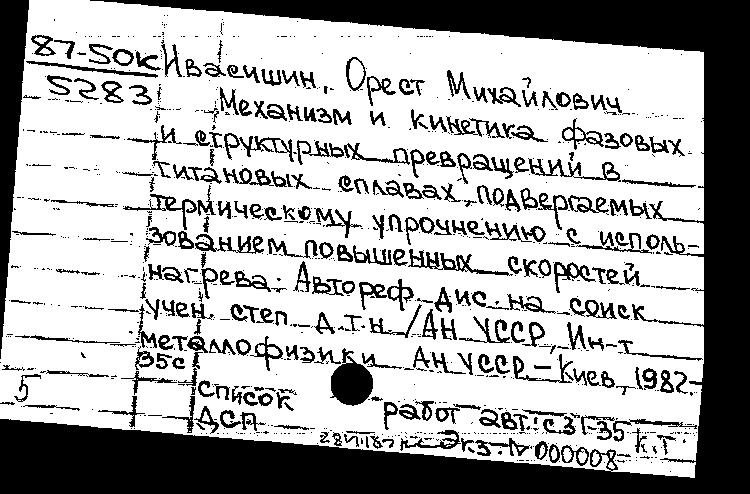 87-50к
5283
Ивасишин, Орест Михайлович
Механизм и кинетика фазовых
и структурных превращений в
титановых сплавах, подвергаемых
термическому упрочнению с исполь-
зованием повышенных скоростей
нагрева: Автореф. дис. на соиск
учен. степ д.т.н. /АН УССР, Ин-т
металлофизики АН УССР.- Киев, 1982.-
35с
5
список работ авт.: с.31-35 к.т
ДСП
Экз. N 000008